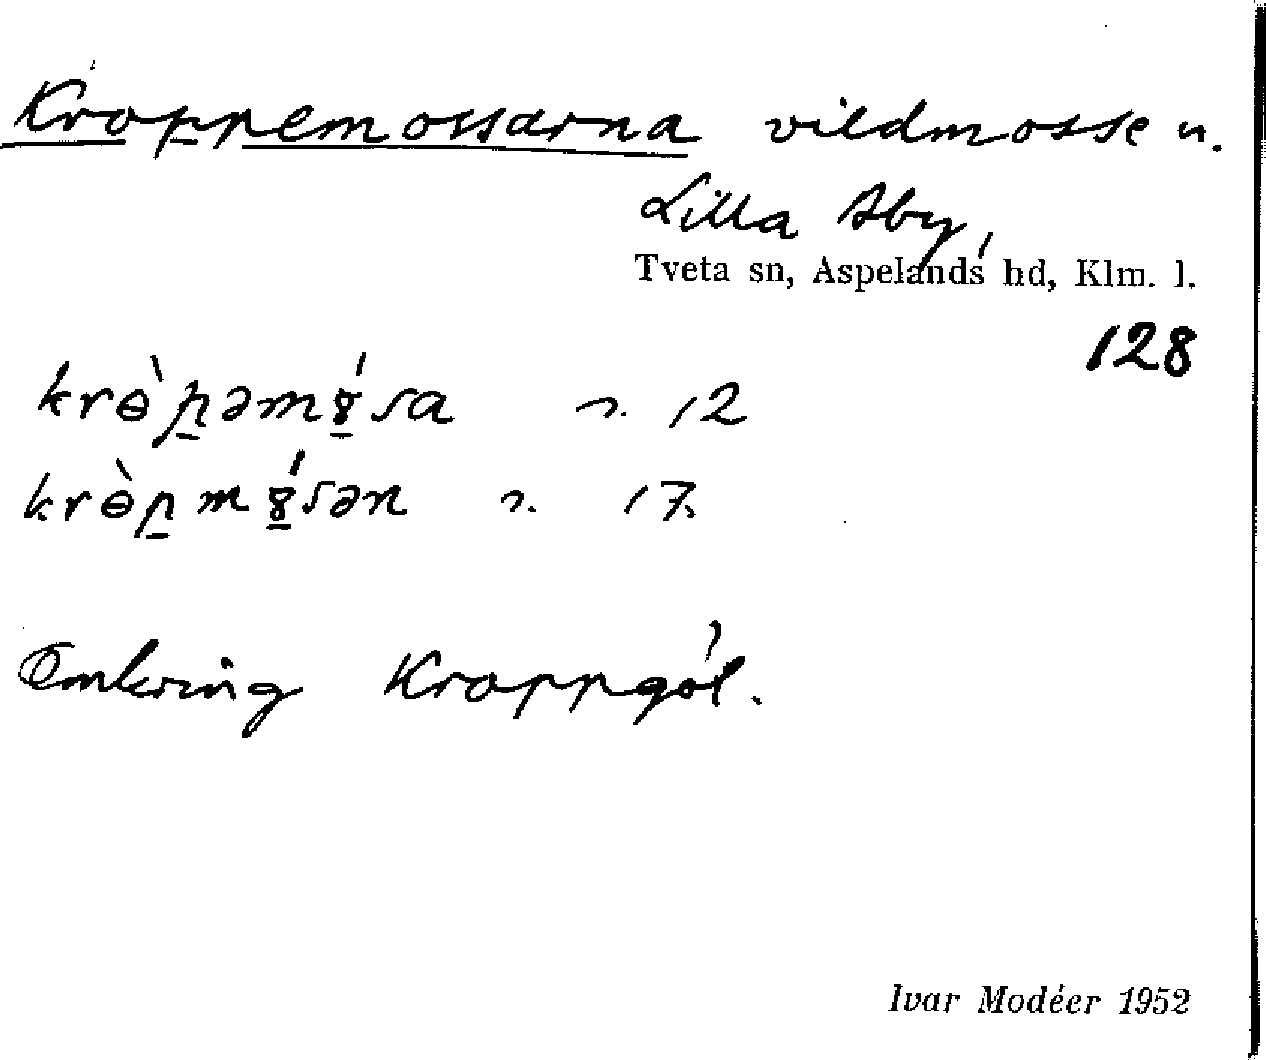 Kroppemossarna vildmosse u.
Lilla Aby,
Tveta sn, Aspelands hd, Klm. l.
128
krɵ̀p̠əmɤ̠́sa n. 12
krɵ̀p̠mɤ̠́sən n. 17.
Omkring Kroppgöl.
Ivar Modéer 1952